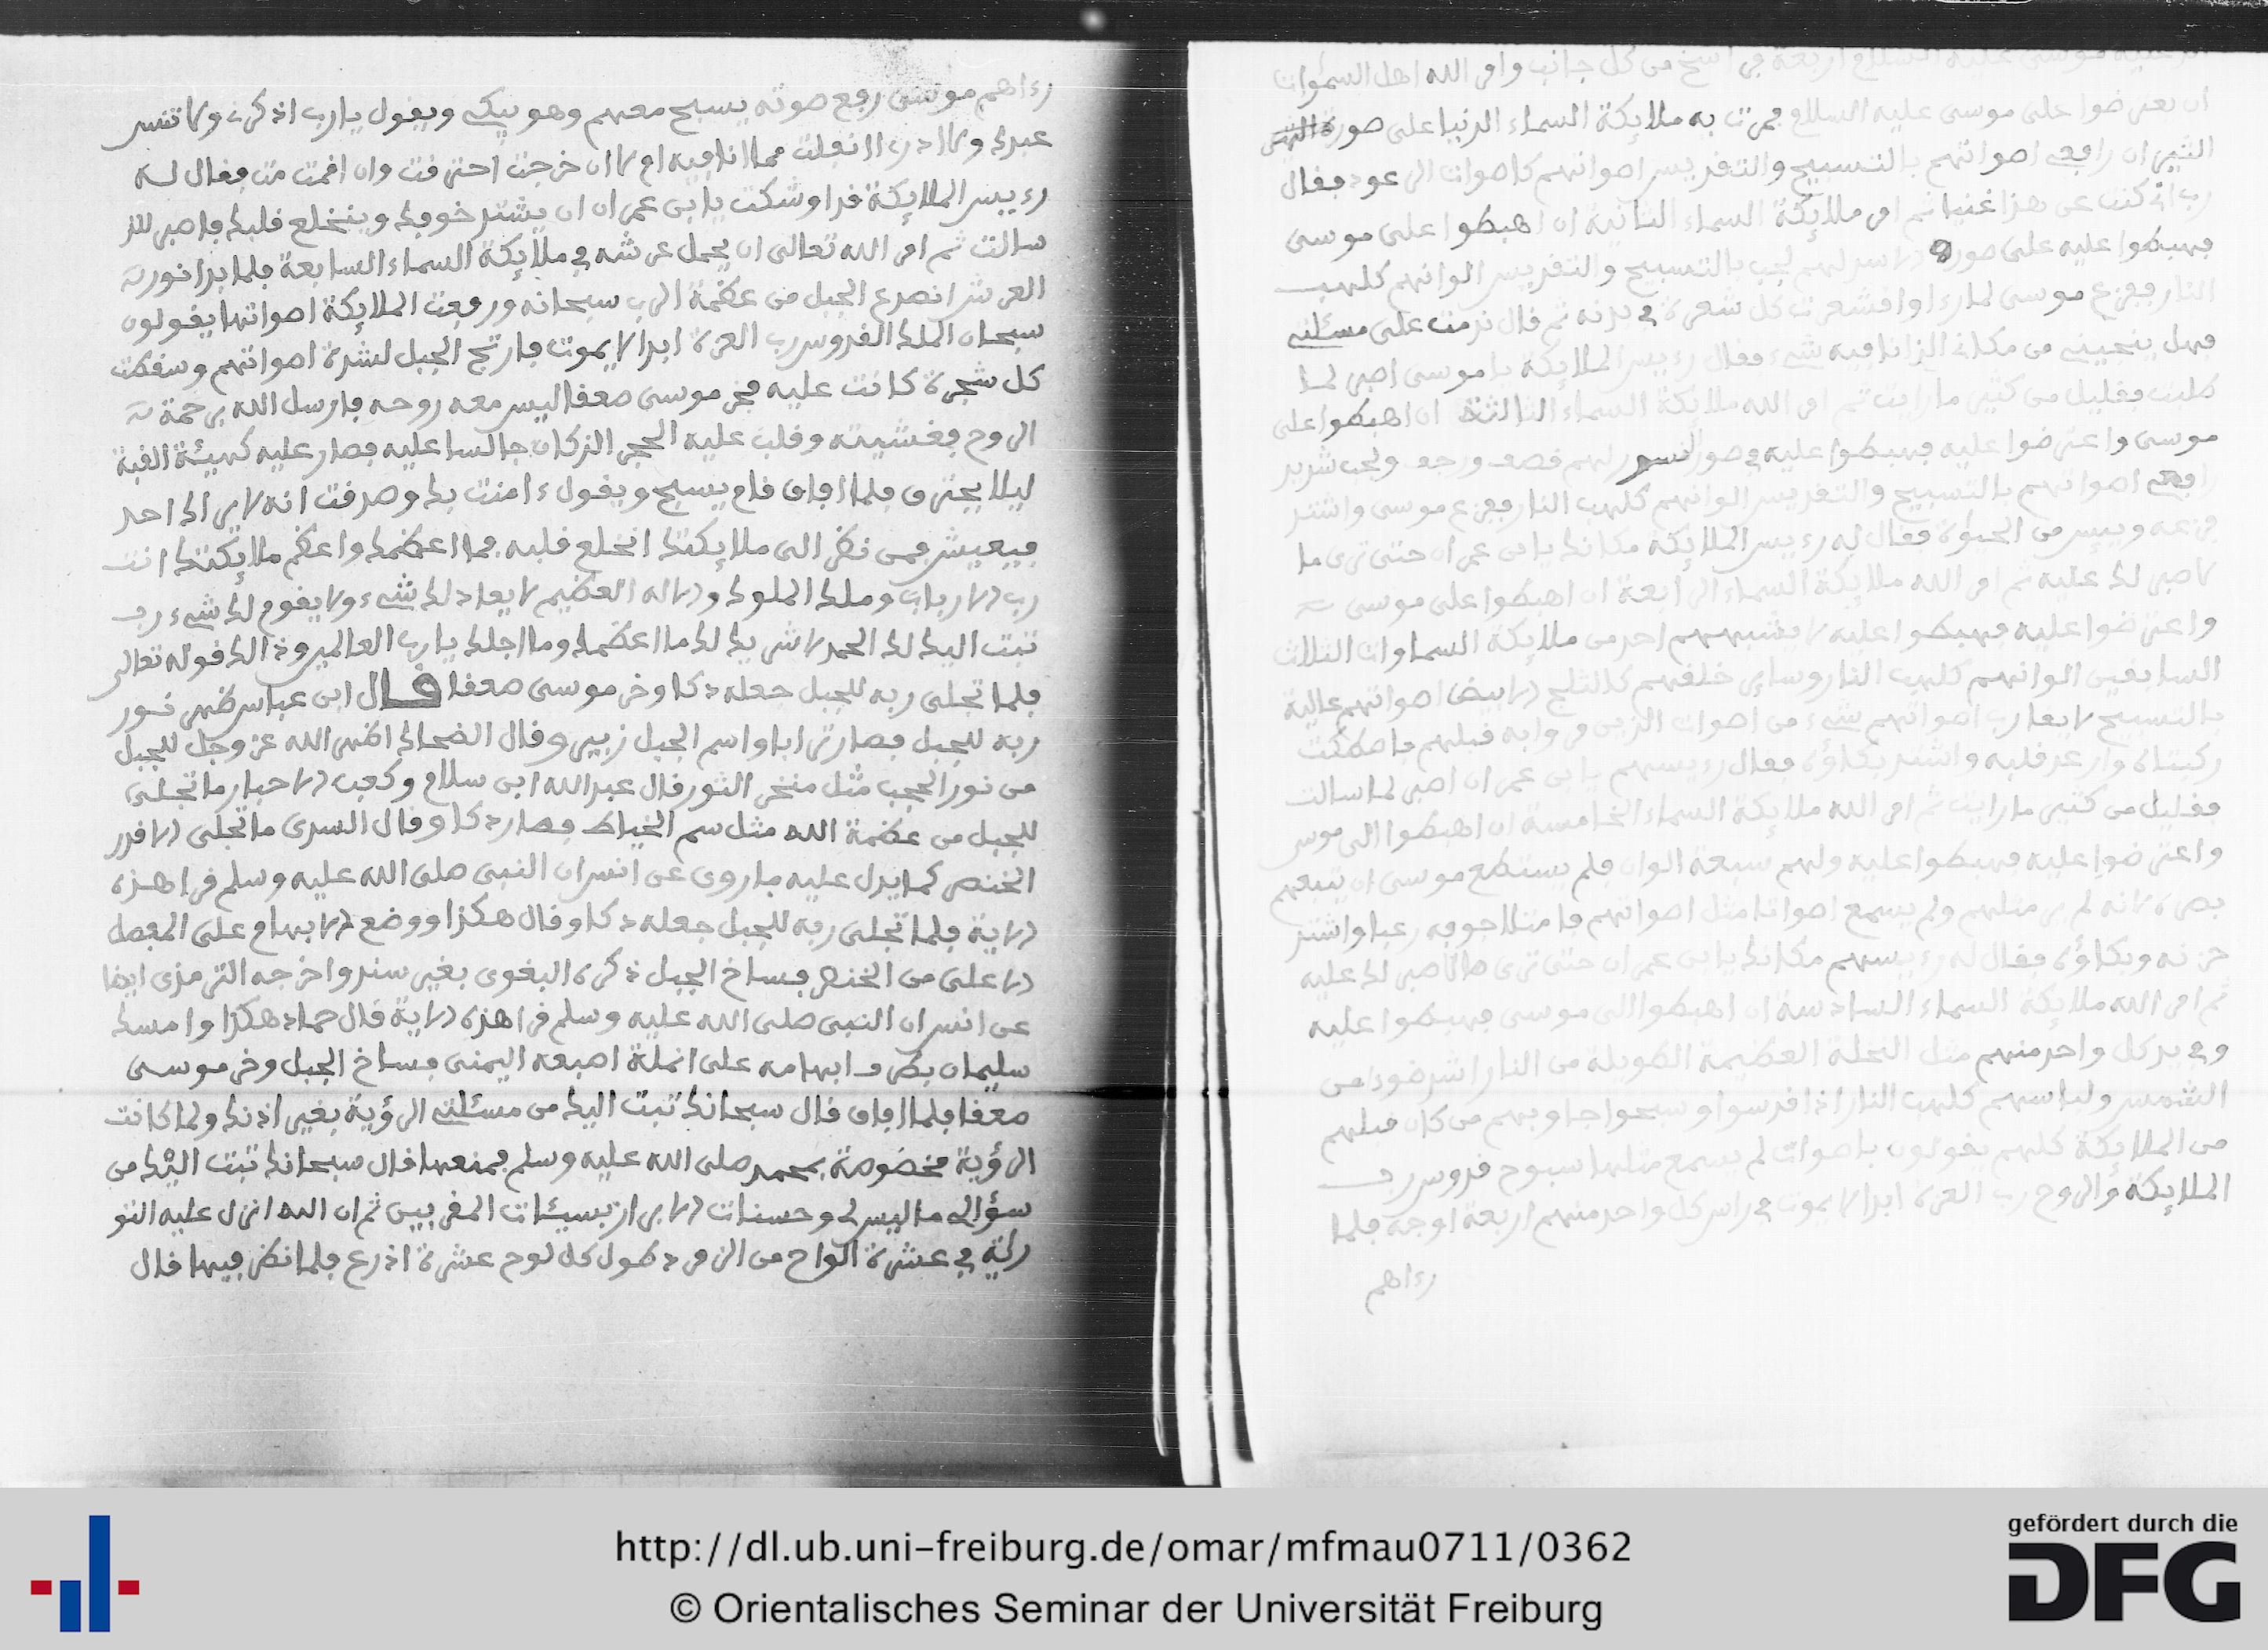 عليه السلام اربعة فراسخ من كل جانب وامر الله اهل السموات
ان يعترضوا على موسى عليه السلام فمرت به ملايكة السماء الدنيا على صورة
الثيران رافعي اصواتهم بالتسبيح والتقديس اصواتهم كاصوات الرعود فقال
رب اني كنت عن هذا غنيا ثم امر ملايكة السماء الثانية ان اهبطوا على موسى
فهبطوا عليه على صورة الاسد لهم لجب بالتسبيح والتقديس الوانهم كلهب
النار ففزع موسى لما رءاوا وافشعرت كل شعرة في بدنه ثم قال ندمت على مسئلتي
فهل ينجيني من مكاني الذي انا فيه شيء فقال رءيس الملايكة يا موسى اصبر لما
طلبت فقليل من كثير ما رايت ثم امر الله ملايكة السماء الثالثة ان اهبطوا على
موسى واعترضوا عليه فهبطوا عليه في صور النسور لهم قصف ورجف ولجب شديد
رافعي اصواتهم بالتسبيح والتقديس الوانهم كلهب النار ففزع موسى واشتد
فزعه ويئس من الحيوة فقال له رءيس الملايكة مكانك يابن عمران حتى ترى ما
لا صبر لك عليه ثم امر الله ملايكة السماء الرابعة ان اهبطوا على موسى
واعترضوا عليه فهبطوا عليه لا يشبههم احد من ملايكة السماوات الثلاث
السابقين الوانهم كلهب النار وساير خلقهم كالثلج الابيض اصواتهم عالية
بالتسبيح لا يقارب اصواتهم شيء من اصوات الذين مروا به قبلهم فاصطكت
ركبتاه وارعد قلبه واشتد بكاؤه فقال رءيسهم يابن عمران اصبر لما سالت
فقليل من كثير ما رايت ثم امر الله ملايكة السماء الخامسة ان اهبطوا الى موسى
واعترضوا عليه فهبطوا عليه ولهم سبعة الوان فلم يستطع موسى ان يتبعهم
بصره لانه لم ير مثلهم ولم يسمع اصواتا مثل اصواتهم فامتلا جوفه رعبا واشتد
حزنه وبكاؤه فقال له رءيسهم مكانك يابن عمران حتى ترى ما لا صبر لك عليه
ثم امر الله ملايكة السماء السادسة ان اهبطوا الى موسى فهبطوا عليه
وفي يد كل واحد منهم مثل النخلة العظيمة الطويلة من النار اشد ضوءا من
الشمس ولباسهم كلهب النار اذا قدسوا وسبحوا جاوبهم من كان قبلهم
من الملايكة كلهم يقولون باصوات لم يسمع مثلها سبوح قدوس رب
الملايكة والروح رب العزة ابدا لا يموت في راس كل واحد منهم اربعة اوجه فلما
رءاهم
رءاهم موسى رفع صوته يسبح معهم وهو يبكي ويقول يا رب اذكرني ولا تنس
عبدك ولا ادري اانفلت مما انا فيه ام لا ان خرجت احترقت وان اقمت مت فقال له
رءيس الملايكة قد اوشكت يابن عمران ان يشتد خوفك وينخلع قلبك فاصبر للذ
سالت ثم امر الله تعالى ان يحمل عرشه في ملايكة السماء السابعة فلما بدا نور
العرش انصدع الجبل من عظمة الرب سبحانه ورفعت الملايكة اصواتها يقولون
سبحان الملك القدوس رب العزة ابدا لا يموت فارتج الجبل لشدة اصواتهم وسقطت
كل شجرة كانت عليه فخر موسى صعقا ليس معه روحه فارسل الله برحمته
الروح فغشيته وقلب عليه الحجر الذي كان جالسا عليه فصار عليه كهيئة القبة
ليلا يحترق فلما افاق قام يسبح ويقول ءامنت بك وصدقت انه لا يراك احد
فيعيش فمن نظر الى ملايكتك انخلع قلبه فما اعظمك واعظم ملايكتك انت
رب الارباب وملك الملوك والاله العظيم لا يعادلك شيء ولا يقوم لك شيء رب
تبت اليك لك الحمد لا شريك لك ما اعظمك وما اجلك يا رب العالمين وذالك قوله تعالى
فلما تجلى ربه للجبل جعله دكا وخر موسى صعقا قال ابن عباس ظهر نور
ربه للجبل فصار ترابا واسم الجبل زبير وقال الضحاك اظهر الله عز وجل للجبل
من نور الحجب مثل منخر الثور قال عبد الله ابن سلام وكعب الاحبار ما تجلى
للجبل من عظمة الله مثل سم الخياط فصار دكا وقال السدي ما تجلى الا قدر
الخنصر كما يدل عليه ما روي عن انس ان النبي صلى الله عليه وسلم قرا هذه
الاية فلما تجلى ربه للجبل جعله دكا وقال هكذا ووضع الابهام على المفصل
الاعلى من الخنصر فساخ الجبل ذكره البغوي بغير سند واخرجه الترمذي ايضا
عن انس ان النبي صلى الله عليه وسلم قرا هذه الاية قال حماد هكذا وامسك
سليمان بطرف ابهامه على انملة اصبعه اليمنى فساخ الجبل وخر موسى
صعقا فلما افاق قال سبحانك تبت اليك من مسئلتي الرؤية بغير اذنك ولما كانت
الرؤية مخصوصة بمحمد صلى الله عليه وسلم فمنعها قال سبحانك تبت اليك من
سؤالي ما ليس لي وحسنات الابرار سيئات المقربين ثم ان الله انزل عليه التو
رية في عشرة الواح من الزمرد طول كل لوح عشرة اذرع فلما نظر فيها قال
http://dl.ub.uni-freiburg.de/omar/mfmau0711/0362
© Orientalisches Seminar der Universität Freiburg
gefördert durch die
DFG